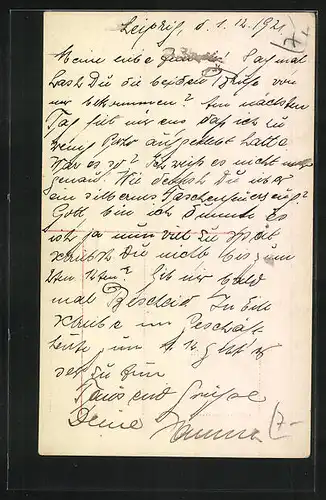 Leipzig, d 1.12.192
7.-
Meine liebe ! Sag mal
hast Du die beiden Briefe von
mir bekommen? Am nächsten
Tag fiel mir ein daß ich zu
wenig Porto aufgeklebt hatte.
War es so? Ich weiß es nicht mehr
genau. Wie denkst Du über
ein silbernes Taschenfeuerzeug?
Gott bin ich dumm. Es
ist ja nun viel zu spät
schreibst Du mehr bis zum
mir bald
mal Bescheid. In Eile
schreibe im Geschäft
heute um
zu tun
Tausend Grüße
Deine
7.-